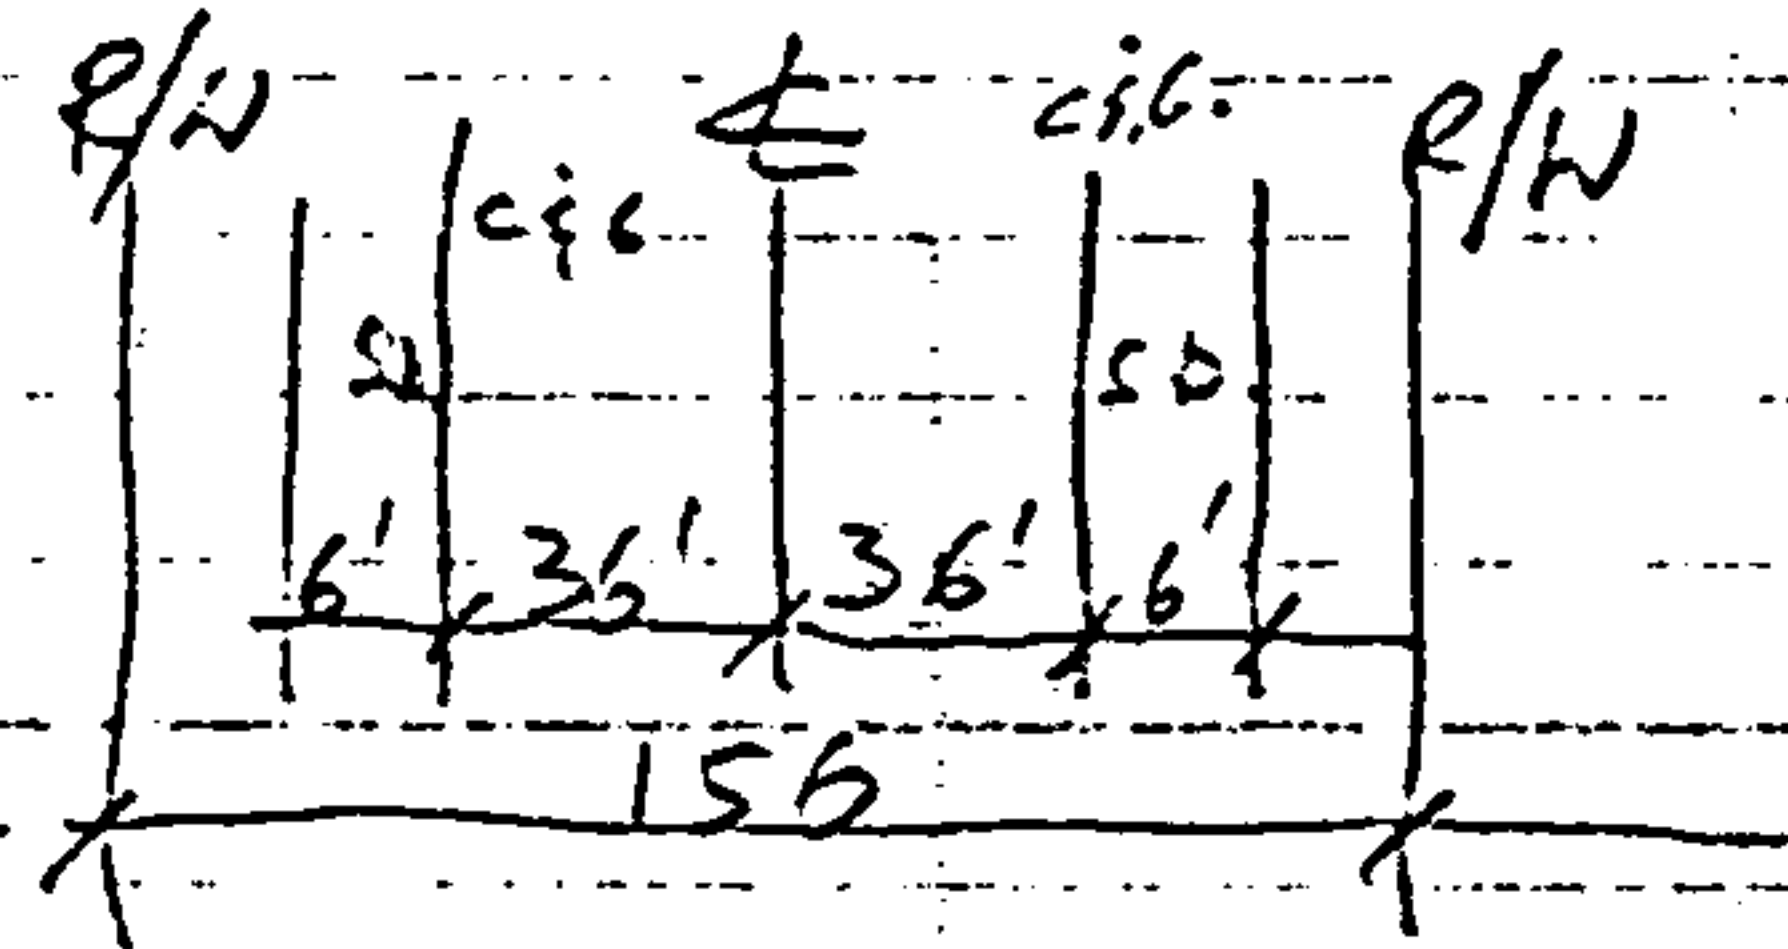 R/W ℄ c&G. R/W
c&G
SD SD
6' 36' 36' 6'
156